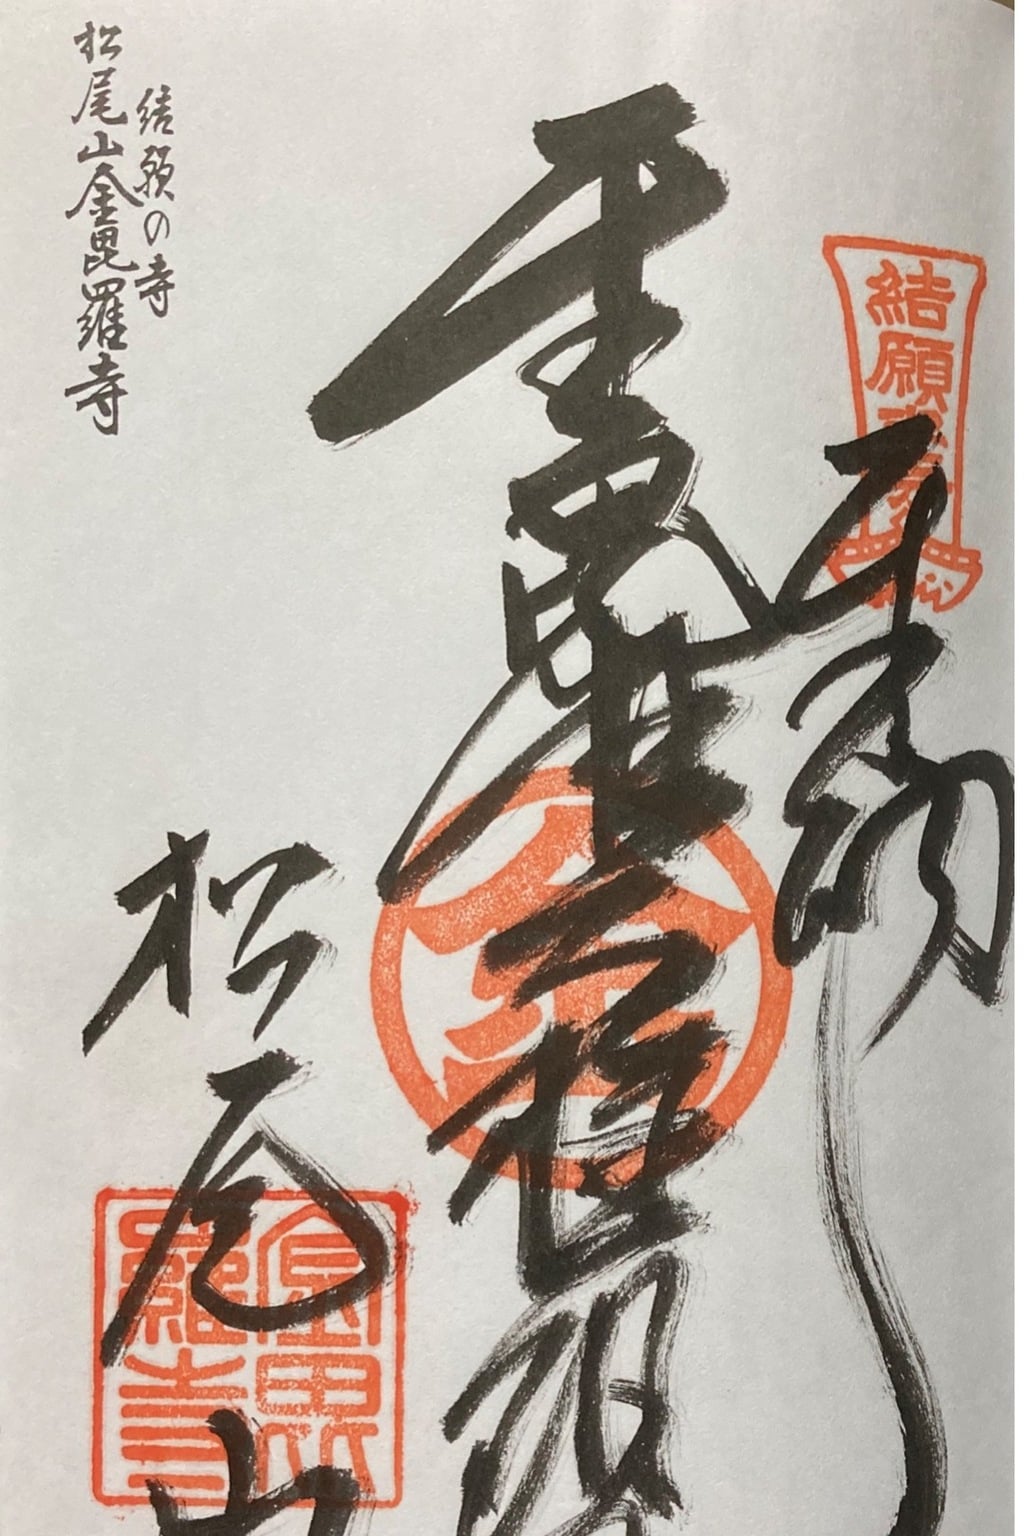 結願
金毘羅大権現
金
結願の寺
松尾山金毘羅寺
松尾山
金毘羅寺